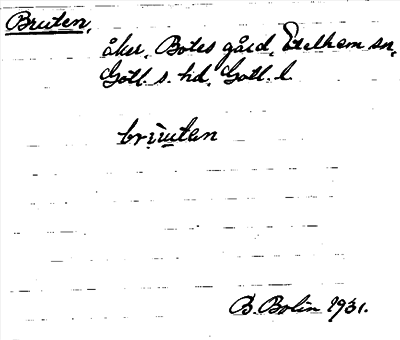 Bruten,
åker, Botes gård, Etelhem sn,
Gotl. s. hd, Gotl. l.
bri̯u̯ten
B. Bolin 1931.